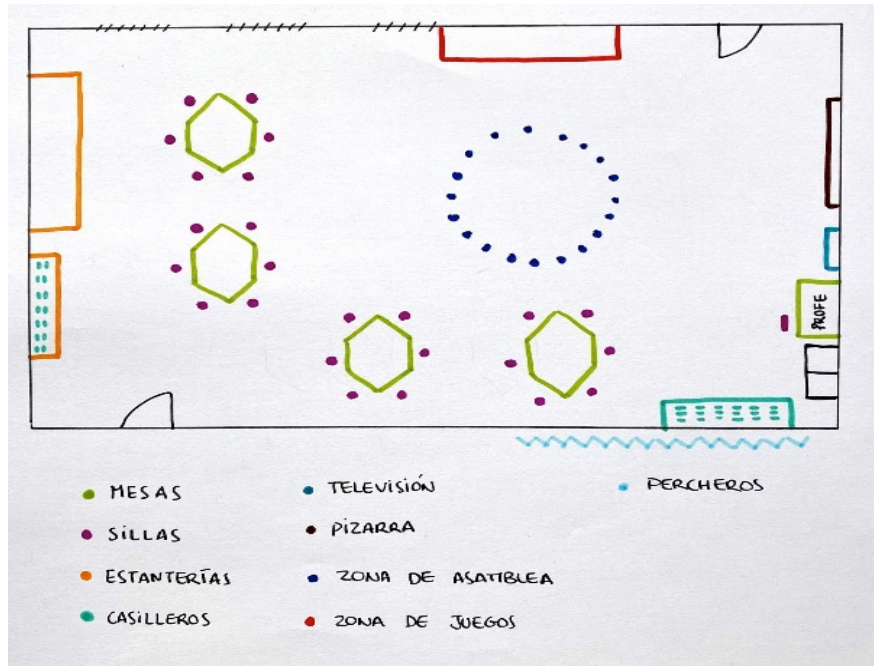 PROFE
MESAS
SILLAS
ESTANTERÍAS
CASILLEROS
TELEVISIÓN
PIZARRA
ZONA DE ASAMBLEA
ZONA DE JUEGOS
PERCHEROS